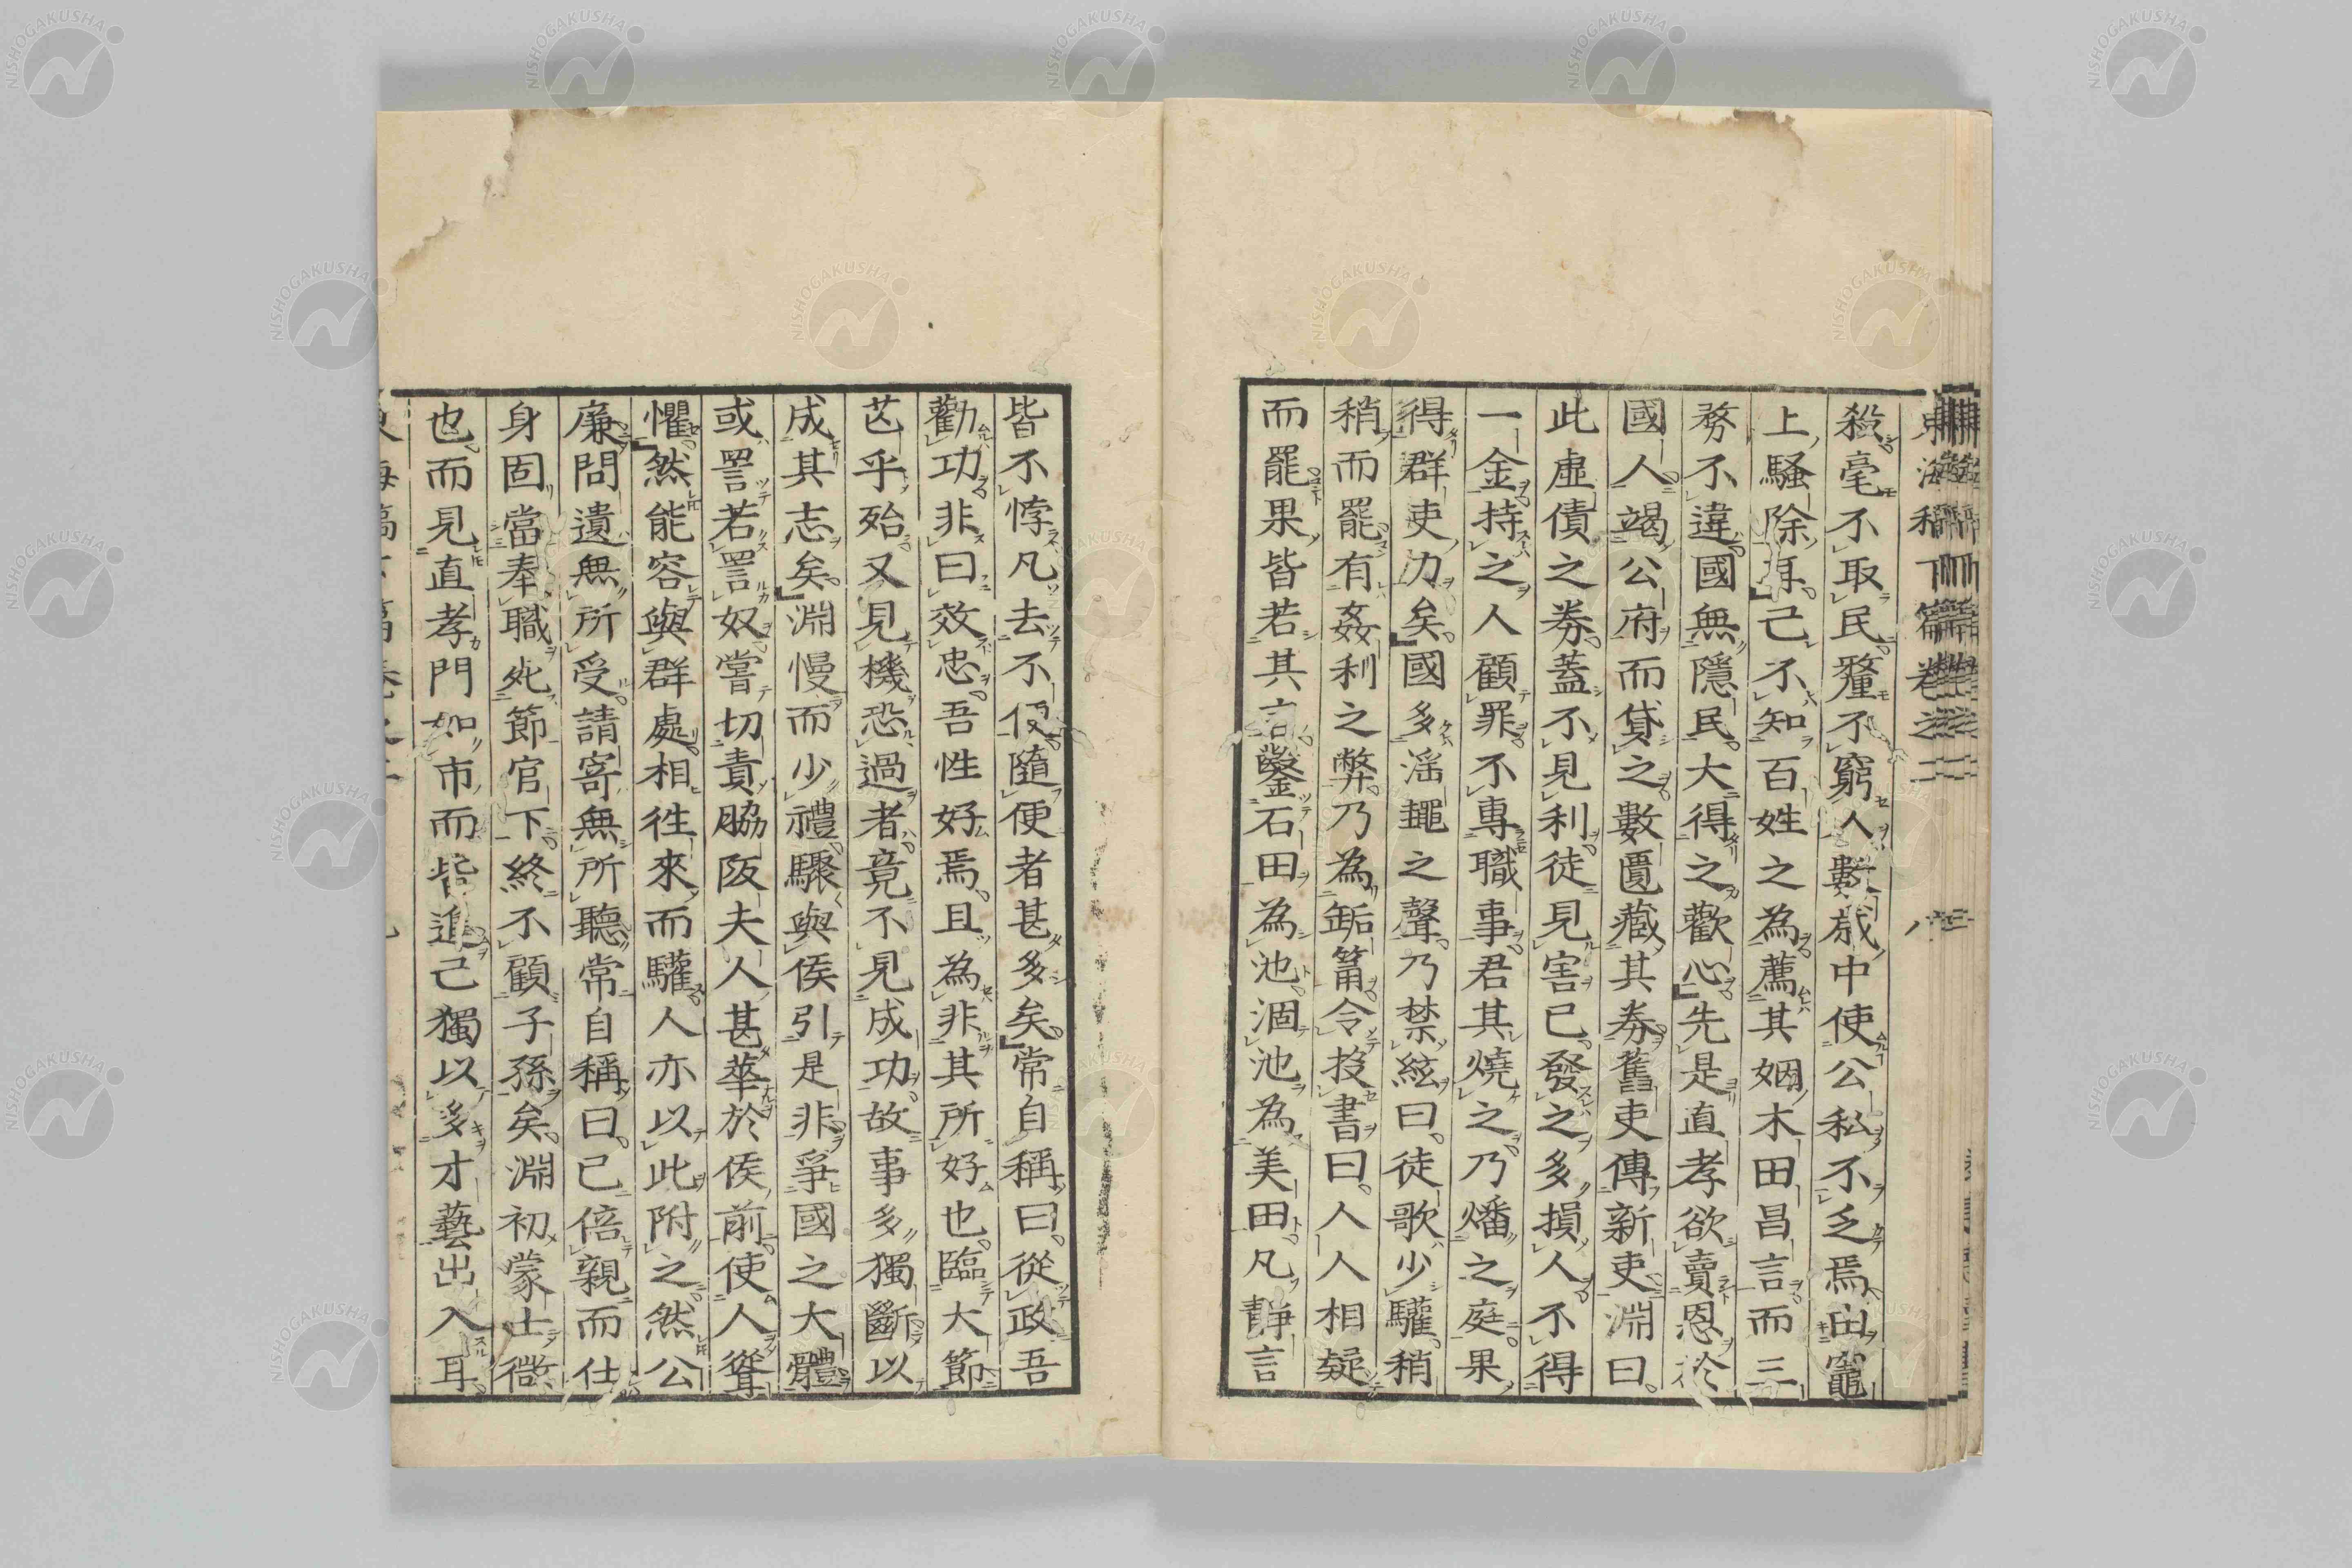 東海稿下篇卷之二 八
殺毫不取民釐不窮人數歲中使公私不乏焉由竈
上騷除耳己不知百姓之為薦其姻木田昌言而三
務不違國無隱民大得之歡心先是直孝欲賣恩於
國人竭公府而貸之數匱藏其券舊吏傳新吏淵曰
此虛債之券蓋不見利徒見害已發之多損人不得
一金持之人顧罪不專職事君其燒之乃燔之庭果
得群吏力矣國多淫䵷之聲乃禁絃曰徒歌少驩稍
稍而罷有姦利之弊乃為缿筩令投書曰人人相疑
而罷果皆若其言鑿石田為池涸池為美田凡靜言
皆不悖凡去不伋隨便者甚多矣常自稱曰從政吾
勸功非曰效忠吾性好焉且為非其所好也臨大節
芘乎殆又見機恐過者竟不見成功故事多獨斷以
成其志矣淵慢而少禮驟與侯引是非爭國之大體
或詈若詈奴嘗切責脇阪夫人甚華於侯前使人聳
懼然能容與群處相往來而驩人亦以此附之然公
廉問遺無所受請寄無所聽常自稱曰已倍親而仕
身固當奉職死節官下終不顧子孫矣淵初蒙士微
也而見直孝門如市而皆進己獨以多才藝出入耳